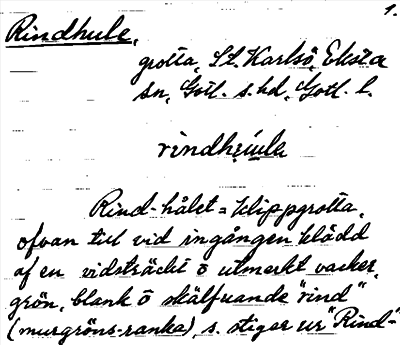 1.
Rindhule,
grotta, St. Karlsö, Eksta
sn, Gotl. s. hd, Gotl. l.
rindheiule
Rind-hålet = klippgrotta,
ofvan till vid ingången klädd
af en vidsträckt o utmerkt vacker,
grön, blank o skälfvande "rind"
(murgröns-ranka), s. stiger ur "Rind-